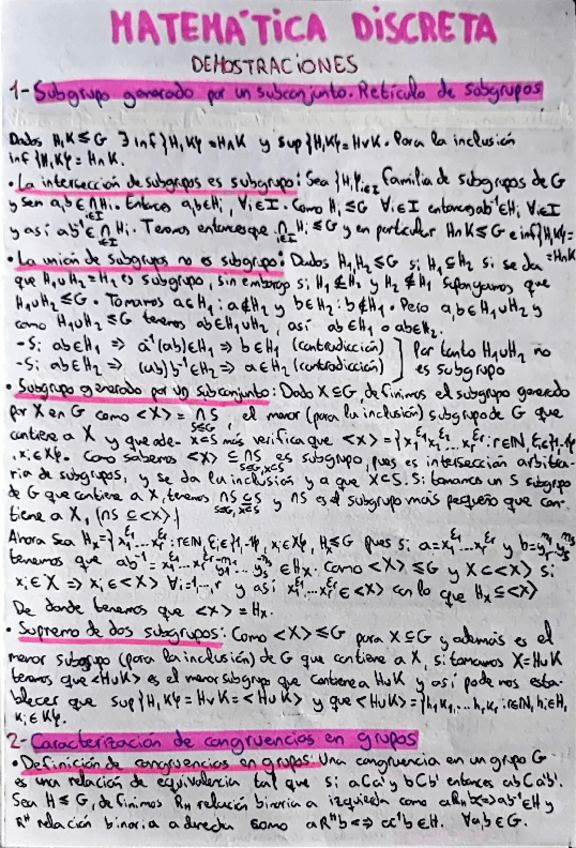 MATEMÁTICA DISCRETA
DEMOSTRACIONES
1-Subgrupo generado por un subconjunto. Retículo de subgrupos
Dados H,K≤G ∃ inf{H,K}=H∩K y sup{H,K}=H∨K. Para la inclusión
inf{H,K}=H∩K.
• La intersección de subgrupos es subgrupo: Sea {Hi}i∈I familia de subgrupos de G
y sean a,b∈∩Hi. Entonces a,b∈Hi, ∀i∈I. Como Hi≤G ∀i∈I entonces ab⁻¹∈Hi ∀i∈I
y así ab⁻¹∈∩Hi. Tenemos entonces que ∩Hi≤G y en particular H∩K≤G e inf{H,K}=
=H∩K
• La unión de subgrupos no es subgrupo: Dados H₁,H₂≤G si H₁⊆H₂ si se da
que H₁∪H₂=H₁ es subgrupo, sin embargo si H₁⊄H₂ y H₂⊄H₁ supongamos que
H₁∪H₂≤G. Tomamos a∈H₁: a∉H₂ y b∈H₂: b∉H₁. Pero a,b∈H₁∪H₂ y
como H₁∪H₂≤G tenemos ab∈H₁∪H₂, así ab∈H₁ o ab∈H₂.
-Si ab∈H₁ => a⁻¹(ab)∈H₁ => b∈H₁ (contradicción)
-Si ab∈H₂ => (ab)b⁻¹∈H₂ => a∈H₂ (contradicción)
Por tanto H₁∪H₂ no
es subgrupo
• Subgrupo generado por un subconjunto: Dado X⊆G, definimos el subgrupo generado
por X en G como <X> = ∩S, el menor (para la inclusión) subgrupo de G que
contiene a X y que además verifica que <X> = {x₁^ε₁ x₂^ε₂...xr^εr: r∈ℕ, εi∈{1,-1}
, xi∈X}. Como sabemos <X> ⊆ ∩S es subgrupo, pues es intersección arbitra-
ria de subgrupos, y se da la inclusión ya que X⊆S. Si tomamos un S subgrupo
de G que contiene a X, tenemos ∩S⊆S y ∩S es el subgrupo más pequeño que con-
tiene a X, (∩S⊆<X>)
Ahora sea Hx={x₁^ε₁...xr^εr: r∈ℕ, εi∈{1,-1}, xi∈X}, Hx≤G pues si a=x₁^ε₁...xr^εr y b=y₁^m₁...ys^ms
tenemos que ab⁻¹=x₁^ε₁...xr^εr y₁^-m₁...ys^ms∈Hx. Como <X>≤G y X⊂<X> si
xi∈X => xi∈<X> ∀i=1...r y así x₁^ε₁...xr^εr∈<X> con lo que Hx⊆<X>
De donde tenemos que <X>=Hx.
• Supremo de dos subgrupos: Como <X>≤G para X⊆G y además es el
menor subgrupo (para la inclusión) de G que contiene a X, si tomamos X=H∪K
tenemos que <H∪K> es el menor subgrupo que contiene a H∪K y así podemos esta-
blecer que sup{H,K}=H∨K=<H∪K> y que <H∪K>={h₁k₁...hrkr: r∈ℕ, hi∈H,
ki∈K}.
2-Caracterización de congruencias en grupos
• Definición de congruencias en grupos: Una congruencia en un grupo G
es una relación de equivalencia tal que si aCa' y bCb' entonces abCa'b'.
Sea H≤G, definimos RH relación binaria a izquierda como aRHb<=>ab⁻¹∈H y
R^H relación binaria a derecha como aR^Hb<=>a⁻¹b∈H. ∀a,b∈G.